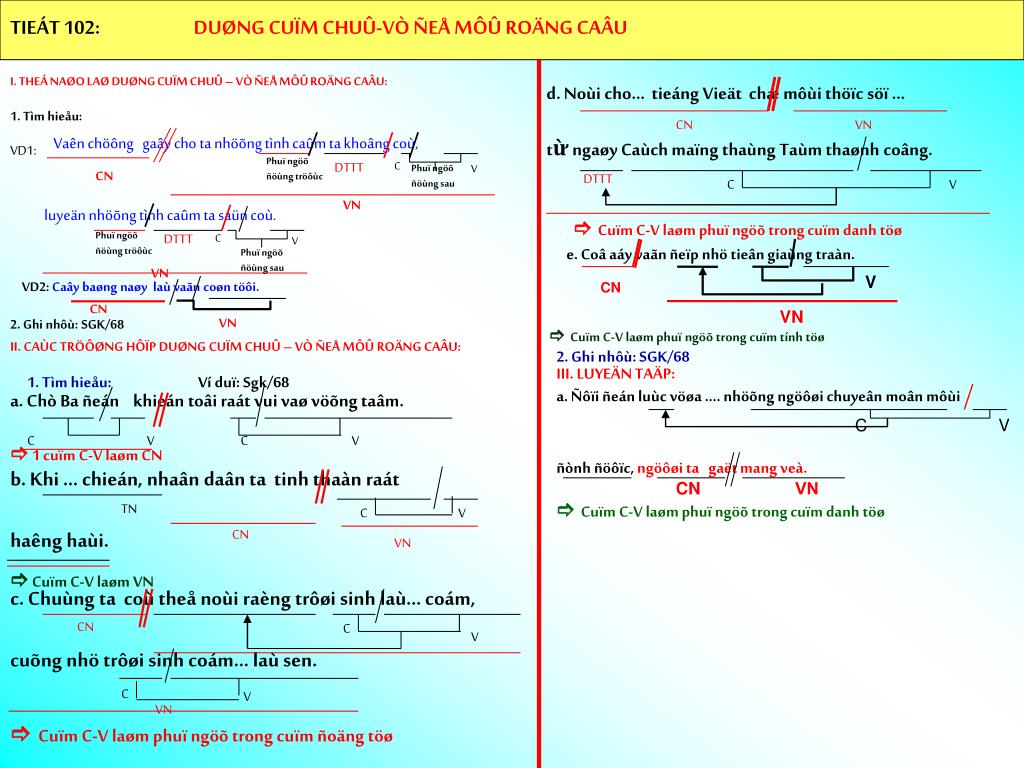 TIEÁT 102: DUØNG CUÏM CHUÛ-VÒ ÑEÅ MÔÛ ROÄNG CAÂU
I. THEÁ NAØO LAØ DUØNG CUÏM CHUÛ – VÒ ÑEÅ MÔÛ ROÄNG CAÂU:
1. Tìm hieåu:
VD1: Vaên chöông gaây cho ta nhöõng tình caûm ta khoâng coù,
CN
Phuï ngöõ ñöùng tröôùc
DTTT
C
Phuï ngöõ ñöùng sau
V
VN
luyeän nhöõng tình caûm ta saün coù.
Phuï ngöõ ñöùng tröôùc
DTTT
C
Phuï ngöõ ñöùng sau
V
VN
VD2: Caây baøng naøy laù vaãn coøn töôi.
CN
VN
2. Ghi nhôù: SGK/68
II. CAÙC TRÖÔØNG HÔÏP DUØNG CUÏM CHUÛ – VÒ ÑEÅ MÔÛ ROÄNG CAÂU:
1. Tìm hieåu: Ví duï: Sgk/68
a. Chò Ba ñeán khieán toâi raát vui vaø vöõng taâm.
C V C V
⇨ 1 cuïm C-V laøm CN
b. Khi ... chieán, nhaân daân ta tinh thaàn raát
TN
CN
C V
VN
haêng haùi.
⇨ Cuïm C-V laøm VN
c. Chuùng ta coù theå noùi raèng trôøi sinh laù... coám,
CN
C V
cuõng nhö trôøi sinh coám... laù sen.
C V
VN
⇨ Cuïm C-V laøm phuï ngöõ trong cuïm ñoäng töø
d. Noùi cho... tieáng Vieät chæ môùi thöïc söï ...
CN VN
từ ngaøy Caùch maïng thaùng Taùm thaønh coâng.
DTTT
C V
⇨ Cuïm C-V laøm phuï ngöõ trong cuïm danh töø
e. Coâ aáy vaãn ñeïp nhö tieân giaùng traàn.
CN
V
VN
⇨ Cuïm C-V laøm phuï ngöõ trong cuïm tính töø
2. Ghi nhôù: SGK/68
III. LUYEÄN TAÄP:
a. Ñôïi ñeán luùc vöøa .... nhöõng ngöôøi chuyeân moân môùi
C V
ñònh ñöôïc, ngöôøi ta gaët mang veà.
CN VN
⇨ Cuïm C-V laøm phuï ngöõ trong cuïm danh töø